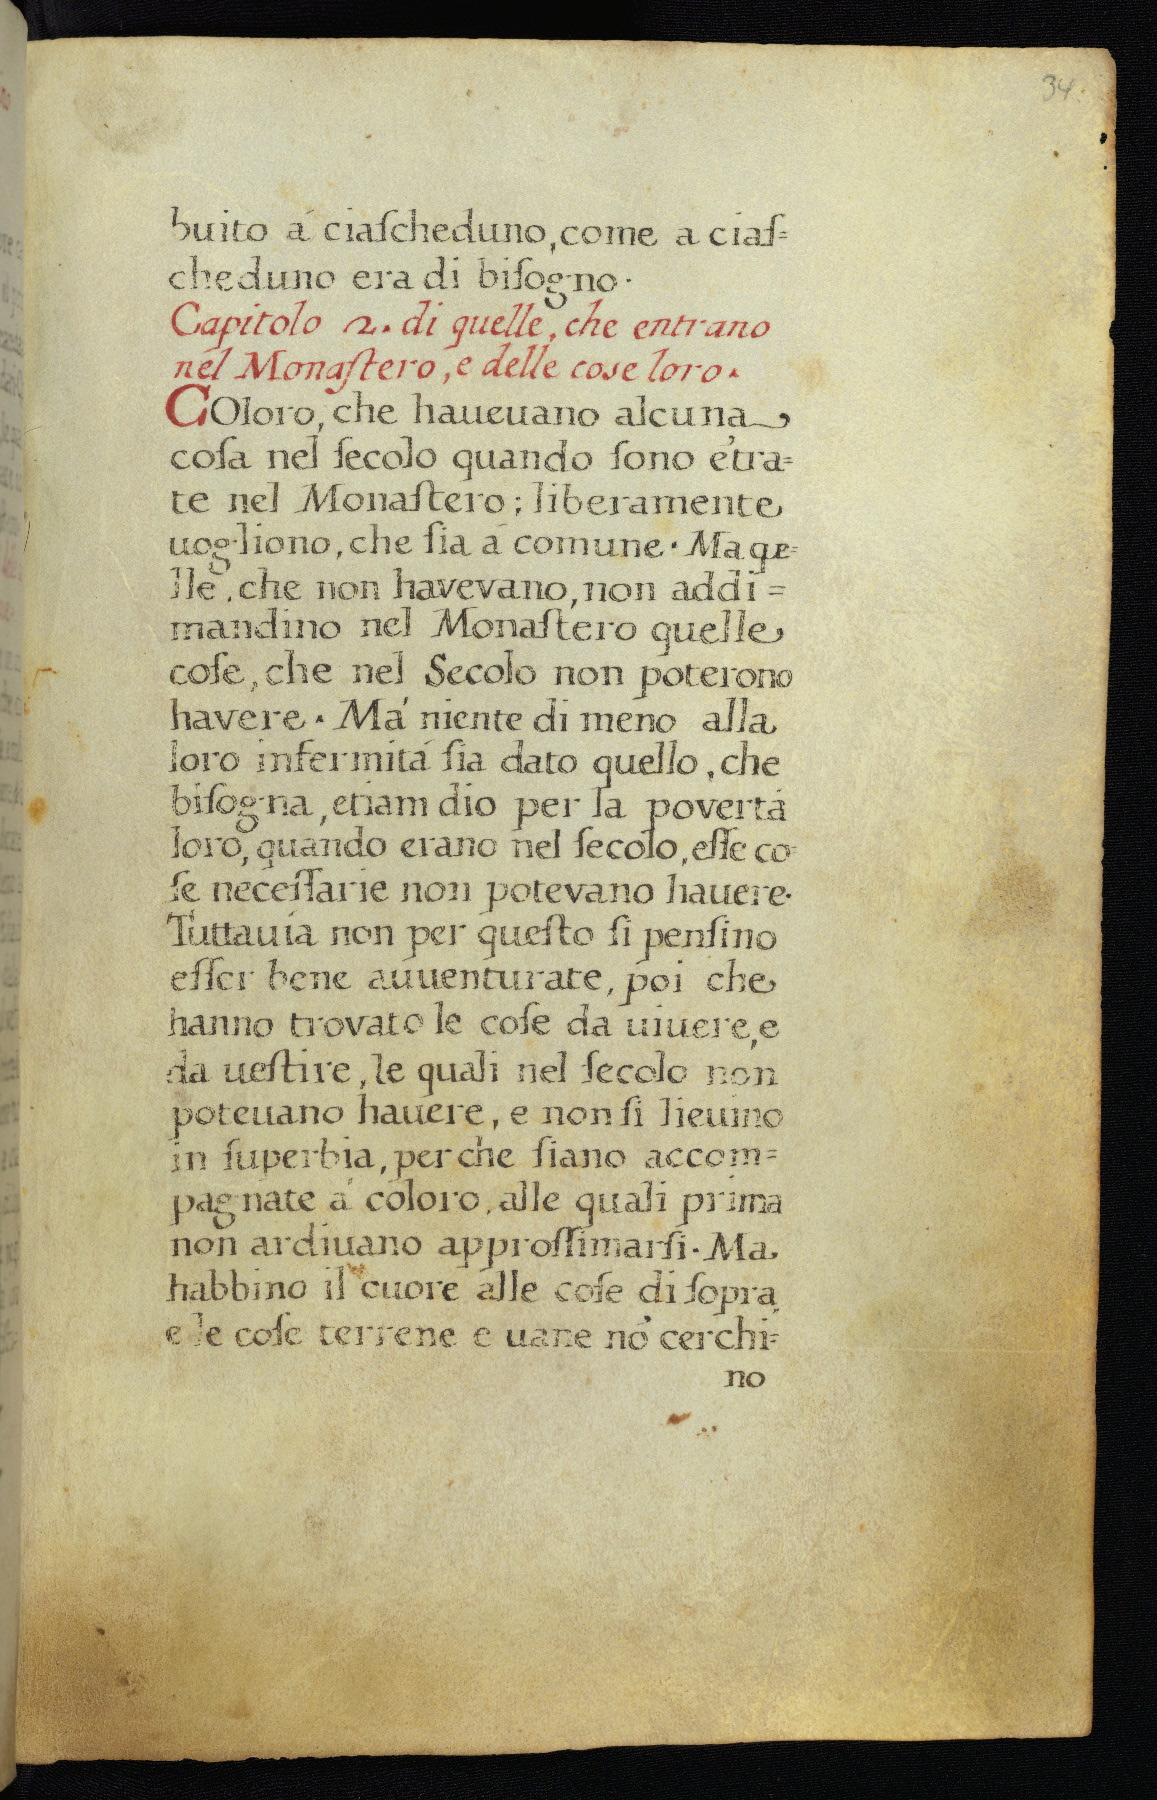 34.
buito á ciaſcheduno, come a ciaſ=
cheduno era di biſogno.
Capitolo 2. di quelle, che entrano
nel Monaſtero, e delle cose loro.
COloro, che haueuano alcuna
coſa nel ſecolo quando ſono étra=
te nel Monaſtero; liberamente
uogliono, che ſia á comune. Ma qe=
lle, che non havevano, non addi=
mandino nel Monaſtero quelle
coſe, che nel Secolo non poterono
havere. Má niente di meno alla
loro infermitá ſia dato quello, che
biſogna, etiam dio per la povertá
loro, quando erano nel ſecolo, eſſe co=
ſe neceſſarie non potevano hauere.
Tuttauia non per queſto ſi penſino
eſſer bene auuenturate, poi che
hanno trovato le coſe da uiuere, e
da ueſtire, le quali nel ſecolo non
poteuano hauere, e non ſi lieuino
in ſuperbia, perche ſiano accom=
pagnate á coloro, alle quali prima
non ardiuano approſſimarſi. Ma
habbino il cuore alle coſe di ſopra,
e le coſe terrene e uane nó cerchi=
no